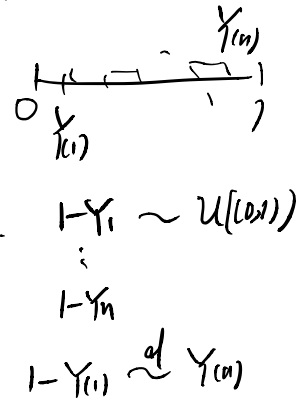 Y(n)
0 1
Y(1)
1-Y1 ~ U((0,1))
⋮
1-Yn
1-Y(1) d~ Y(n)